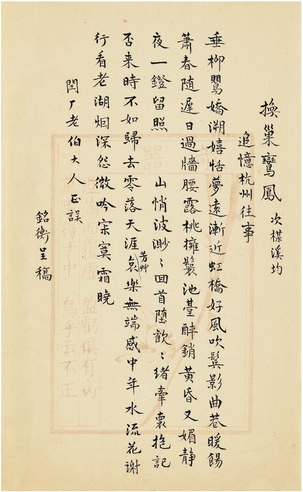 換巢鸞鳳 次楳溪均
追憶杭州往事
垂柳鶯嬌溯嬉恬夢遠漸近虹橋好風吹鬢影曲巷暖餳
簫春随遲日過牆腰露桃擁鬟池臺醉銷黃昏又媚静
夜一鐙留照 山悄波渺〻回首墮歡〻緒牽裹抱記
否来時不如歸去零落天涯芳艸哀樂無端感中年水流花謝
行看老湖烟深怨微吟宋寞霜曉
閏厂老伯大人正誤
銘衡呈稿